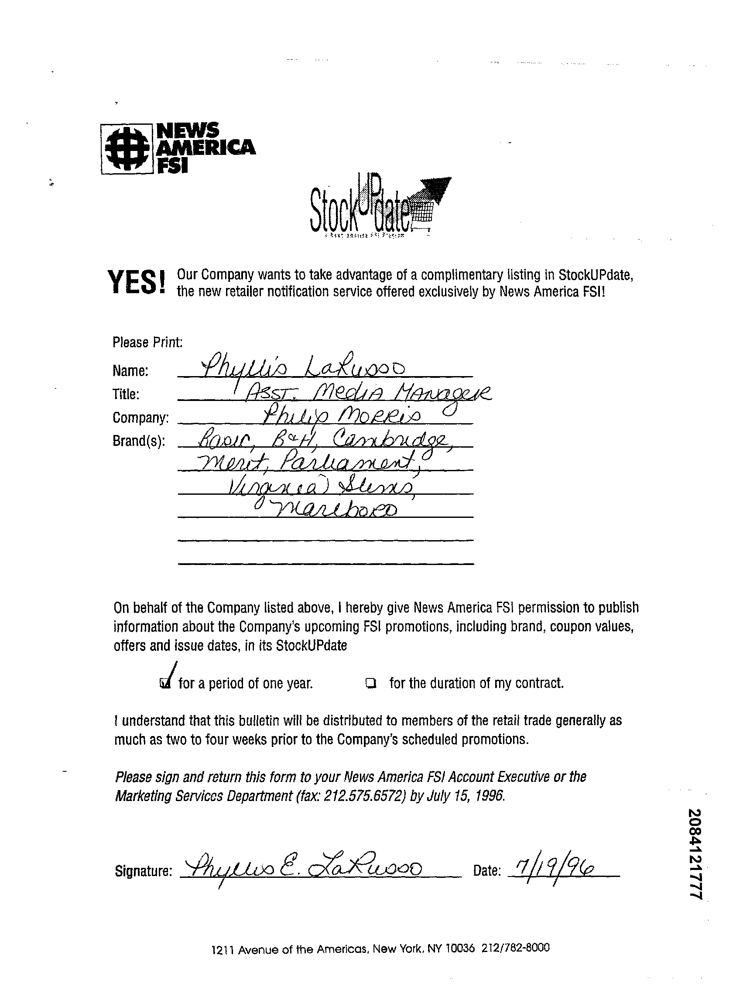 NEWS
AMERICA
FSI
StockUPdate
A News America FSI Program
YES! Our Company wants to take advantage of a complimentary listing in StockUPdate,
the new retailer notification service offered exclusively by News America FSI!
Please Print:
Name: Phyllis LaRusso
Title: Asst. Media Manager
Company: Philip Morris
Brand(s): Basic, B&H, Cambridge,
Merit, Parliament,
Virginia Slims,
Marlboro
On behalf of the Company listed above, I hereby give News America FSI permission to publish
information about the Company's upcoming FSI promotions, including brand, coupon values,
offers and issue dates, in its StockUPdate
for a period of one year. for the duration of my contract.
I understand that this bulletin will be distributed to members of the retail trade generally as
much as two to four weeks prior to the Company's scheduled promotions.
Please sign and return this form to your News America FSI Account Executive or the
Marketing Services Department (fax: 212.575.6572) by July 15, 1996.
Signature: Phyllis E. LaRusso Date: 7/19/96
2084121777
1211 Avenue of the Americas, New York, NY 10036 212/782-8000